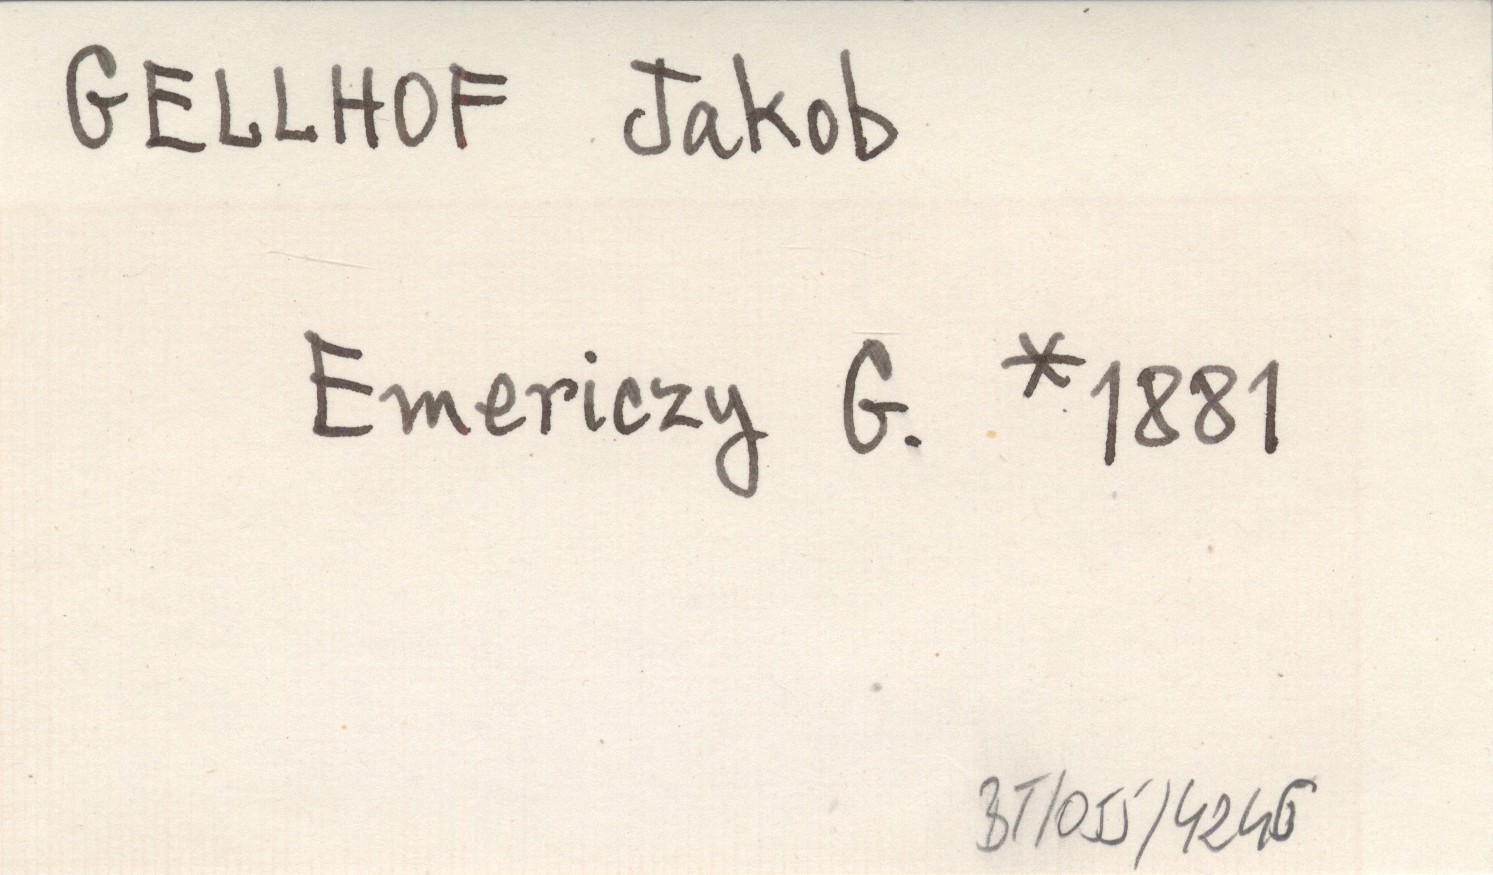 GELLHOF Jakob
Emericzy G. *1881
BT/055/4246